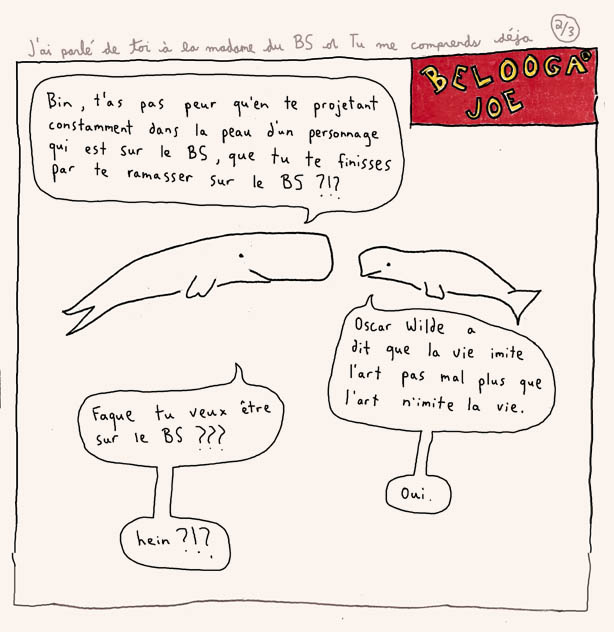 J'ai parlé de toi à la madame du BS et Tu me comprends déjà
2/3
BELOOGA
JOE
Bin, t'as pas peur qu'en te projetant
constamment dans la peau d'un personnage
qui est sur le BS, que tu te finisses
par te ramasser sur le BS ?!?
Oscar Wilde a
dit que la vie imite
l'art pas mal plus que
l'art n'imite la vie.
Faque tu veux être
sur le BS ???
Oui.
hein ?!?